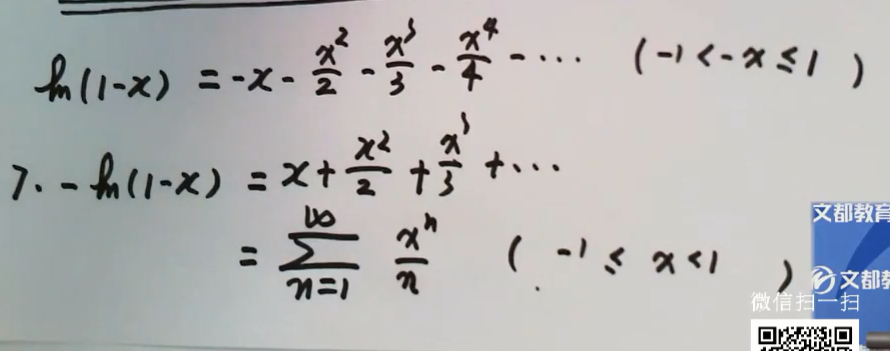 ln(1-x) = -x - x²/2 - x³/3 - x⁴/4 - ··· (-1 < -x ≤ 1)
7. -ln(1-x) = x + x²/2 + x³/3 + ···
= ∑_{n=1}^{∞} xⁿ/n (-1 ≤ x < 1)
文都教育
文都教
微信扫一扫